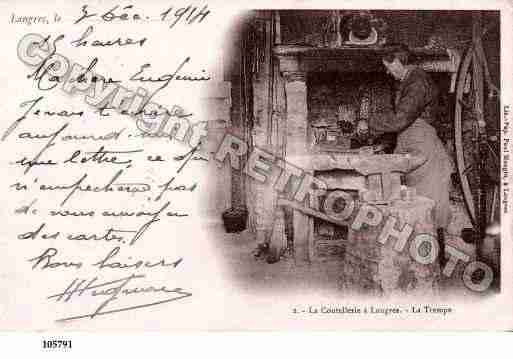 Langres, le 3 Déc. 1914
15 heures
Ma chère Eugénie
Je vais t'écrire
aujourd
une lettre, ce qui
n'empêchera pas
de vous envoyer
des cartes.
Bons baisers
2. - La Coutellerie à Langres. - La Trempe
Lib.-Pap. Paul Mangin, à Langres
© COPYRIGHT RETROPHOTO
105791